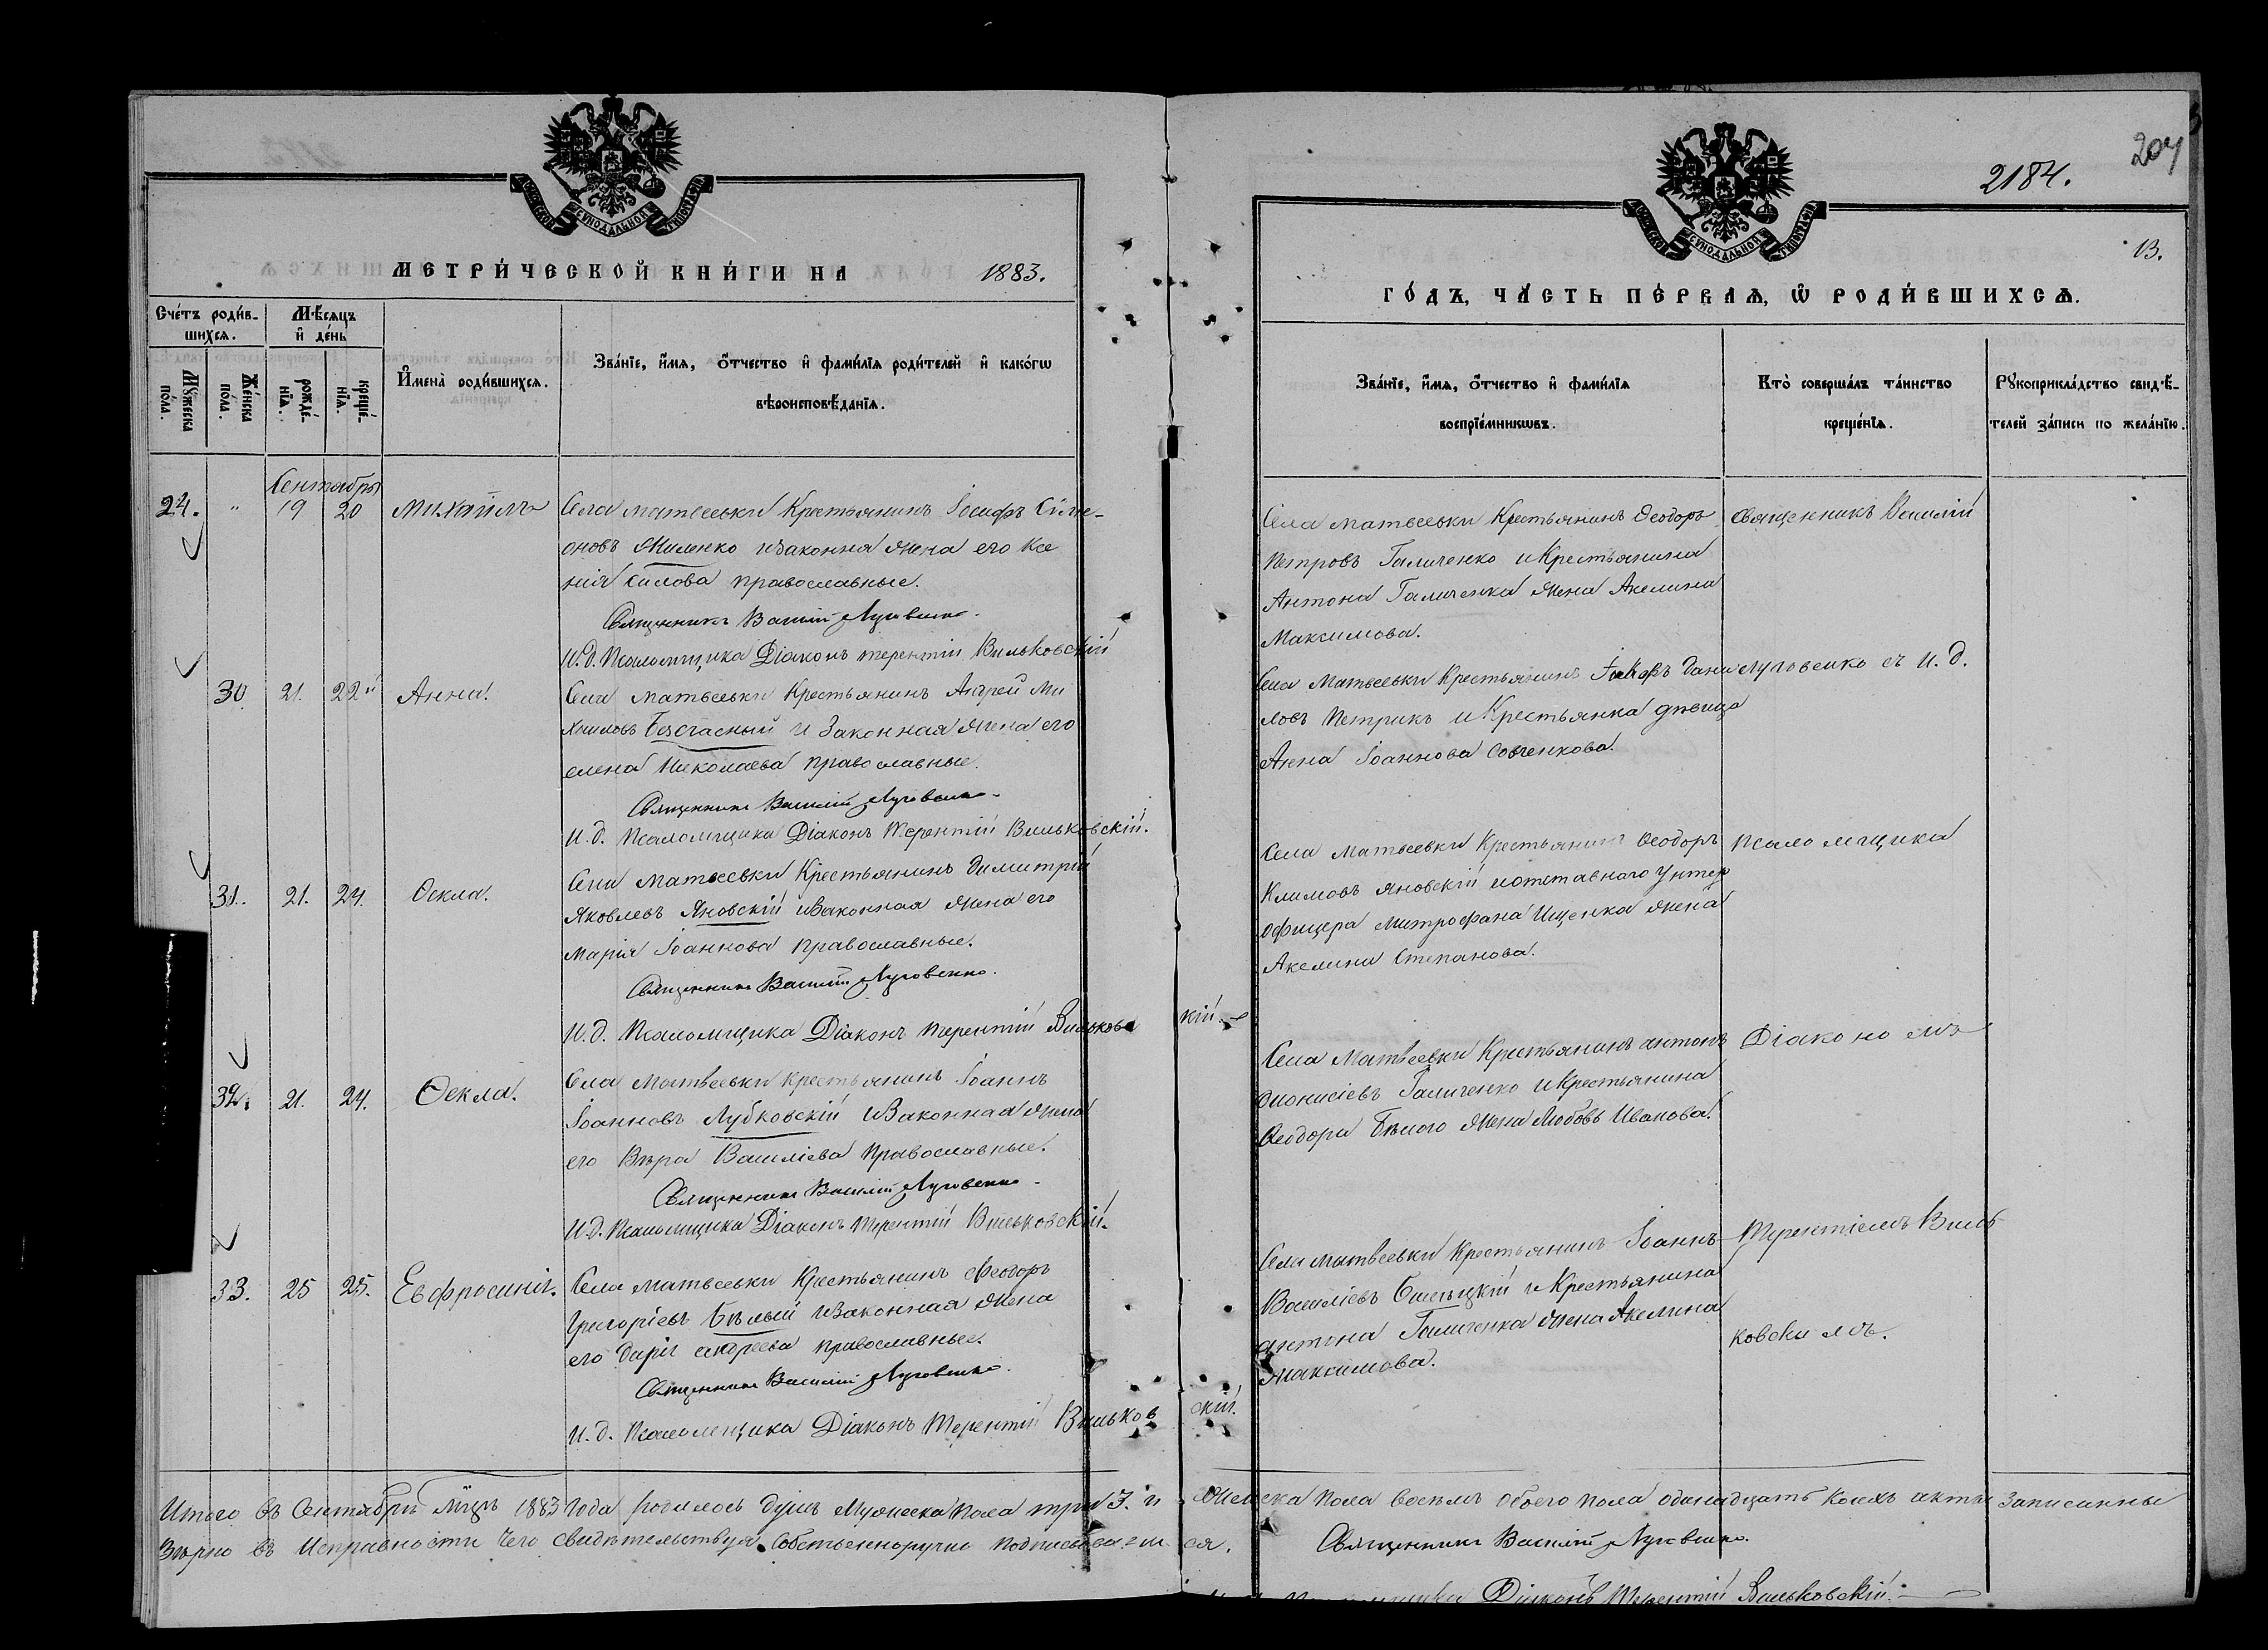 204
2184.
13.
МОСКОВСКОЙ СѴНОДАЛЬНОЙ ТИПОГРАФІИ
МЕТРИ́ЧЕСКОЙ КНИ́ГИ НА 1883.
Сче́тъ роди́в-
шихся.
Мѣ́сяцъ
и҆ де́нь
Мꙋ́жеска
по́ла.
Же́нска
по́ла.
рожде́-
нїя.
креще́-
нїя.
И҆мена̀ роди́вшихся.
Зва́нїе, и҆́мя, ѻ҆́тчество и҆ фами́лїя роди́телей и҆ како́гѡ
вѣроисповѣ́данїя.
Сентября
24. " 19 20 Михаилъ
Села Матвеевки Крестьянинъ Іосифъ Симе-
оновъ Миленко и законная жена его Ксе
нія Силова православные.
Священникъ Василій Луговенко.
И.д. Псаломщика Діаконъ Терентій Вильковскій
30 21. 22й Анна.
Села Матвеевки Крестьянинъ Андрей Ми
хаиловъ Безчасный и Законная жена его
елена Николаева православные.
Священникъ Василій Луговенко.
И.д. Псаломщика Діаконъ Терентій Вильковскій.
31. 21. 24. Ѳекла.
Села Матвеевки Крестьянинъ Димитрій
Яковлевъ Яновскій и Законная жена его
Марія Іоаннова православные.
Священникъ Василій Луговенко.
И.д. Псаломщика Діаконъ Терентій Вильковскій.
32. 21. 24. Ѳекла.
Села Матвеевки крестьянинъ Іоаннъ
Іоанновъ Лубковскій и Законная жена
его Вѣра Василіева Православные.
Священникъ Василій Луговенко.
И.д. Псаломщика Діаконъ Терентій Вильковскій.
33. 25 25. Евфросинія.
Села Матвеевки Крестьянинъ Феодоръ
Григоріевъ Бѣлый и Законная жена
его Дарія андреева православные.
Священникъ Василій Луговенко.
И.д. Псаломщика Діаконъ Терентій Вильковскій.
МОСКОВСКОЙ СѴНОДАЛЬНОЙ ТИПОГРАФІИ
ГО́ДЪ, ЧА́СТЬ ПЕ́РВАЯ, Ѡ҆ РОДИ́ВШИХСЯ.
Зва́нїе, и҆́мя, ѻ҆́тчество и҆ фами́лїя
воспрїе́мникѡвъ.
Кто̀ соверша́лъ та́инство
креще́нїя.
Рꙋкоприкла́дство свидѣ́-
телей за́писи по жела́нїю.
Села Матвеевки Крестьянинъ Ѳеодоръ
Петровъ Галиченко и Крестьянина
Антона Галиченка жена Акелина
Максимова.
Села Матвеевки Крестьянинъ Іаковъ Дани
ловъ Петрикъ и Крестьянка дѣвица
Анна Іоаннова Совченкова.
Села Матвеевки Крестьянинъ Ѳеодоръ
Климовъ Яновскій и отставного Унтер
офицера Митрофана Ищенка жена
Акелина Степанова.
Села Матвеевки Крестьянинъ антонъ
Дионисіевъ Галиченко и Крестьянина
Ѳеодора Бѣлого жена Любовь Иванова.
Села Матвеевки Крестьянинъ Іоаннъ
Василіевъ и Крестьянина
антона Галиченка жена Акелина
Максимова.
Священникъ Василій
Луговенко съ И.д.
Псаломщика
Діакономъ
Терентіемъ Виль
ковскимъ.
Итого въ Сентябрѣ мѣцѣ 1883 года родилось душъ Мужеска пола три 3. и Женска пола восемь обоего пола одинадцать коихъ акты записанны
Вѣрно въ Исправности чего свидѣтельствуя Собственноручно подписываемся.
Священникъ Василій Луговенко.
Діаконъ Терентій Вильковскій.